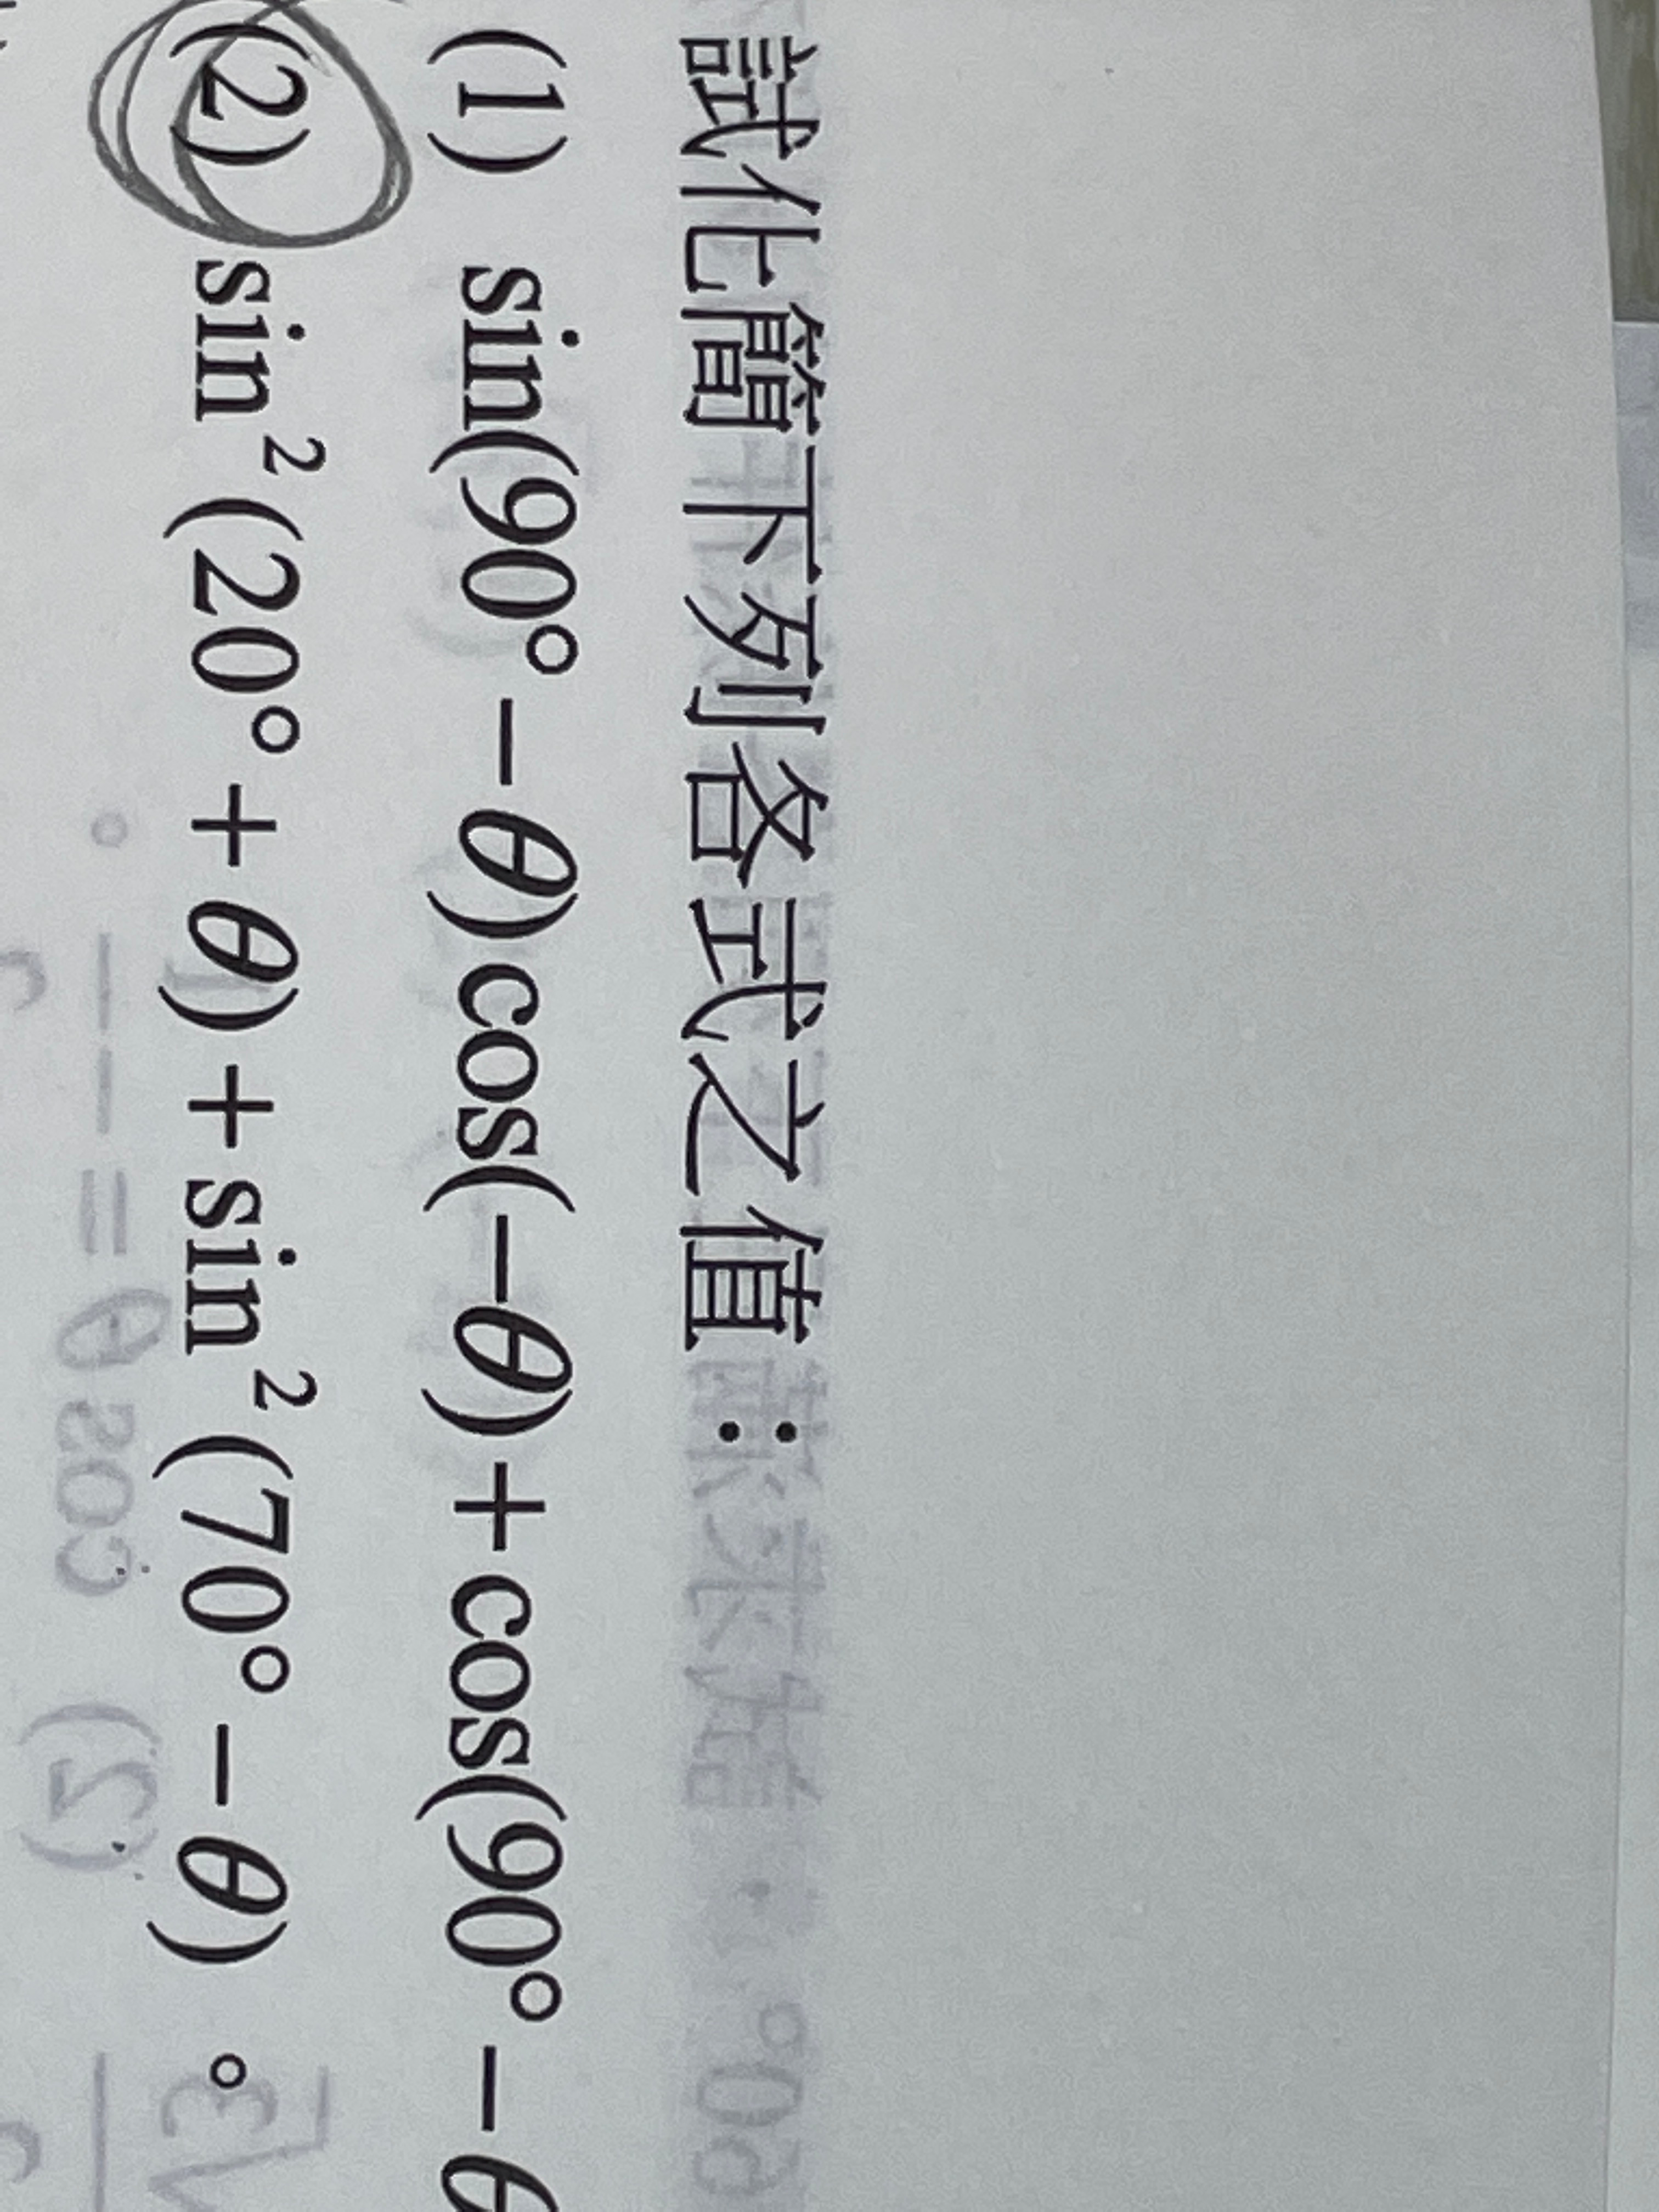 試化簡下列各式之值：
(1) sin(90° − θ)cos(−θ) + cos(90° − θ
(2) sin² (20° + θ) + sin² (70° − θ) 。